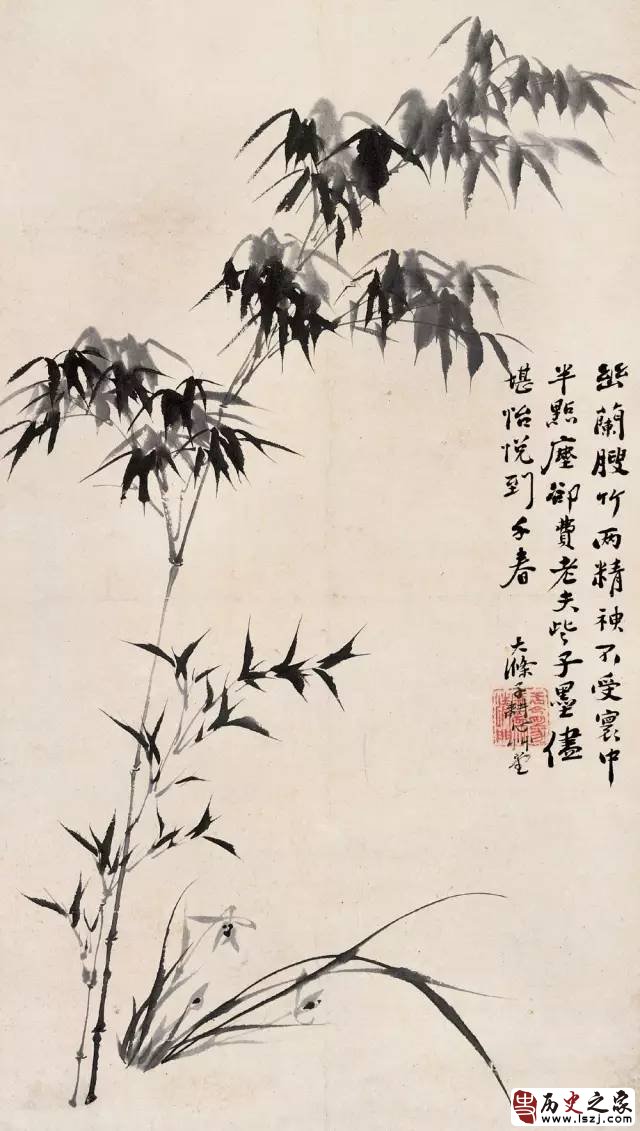 幽蘭膄竹两精神不受寰中
半點塵卻費老夫些子墨儘
堪怡悦到千春
大滌子耕心艸堂
历史之家
www.lszj.com